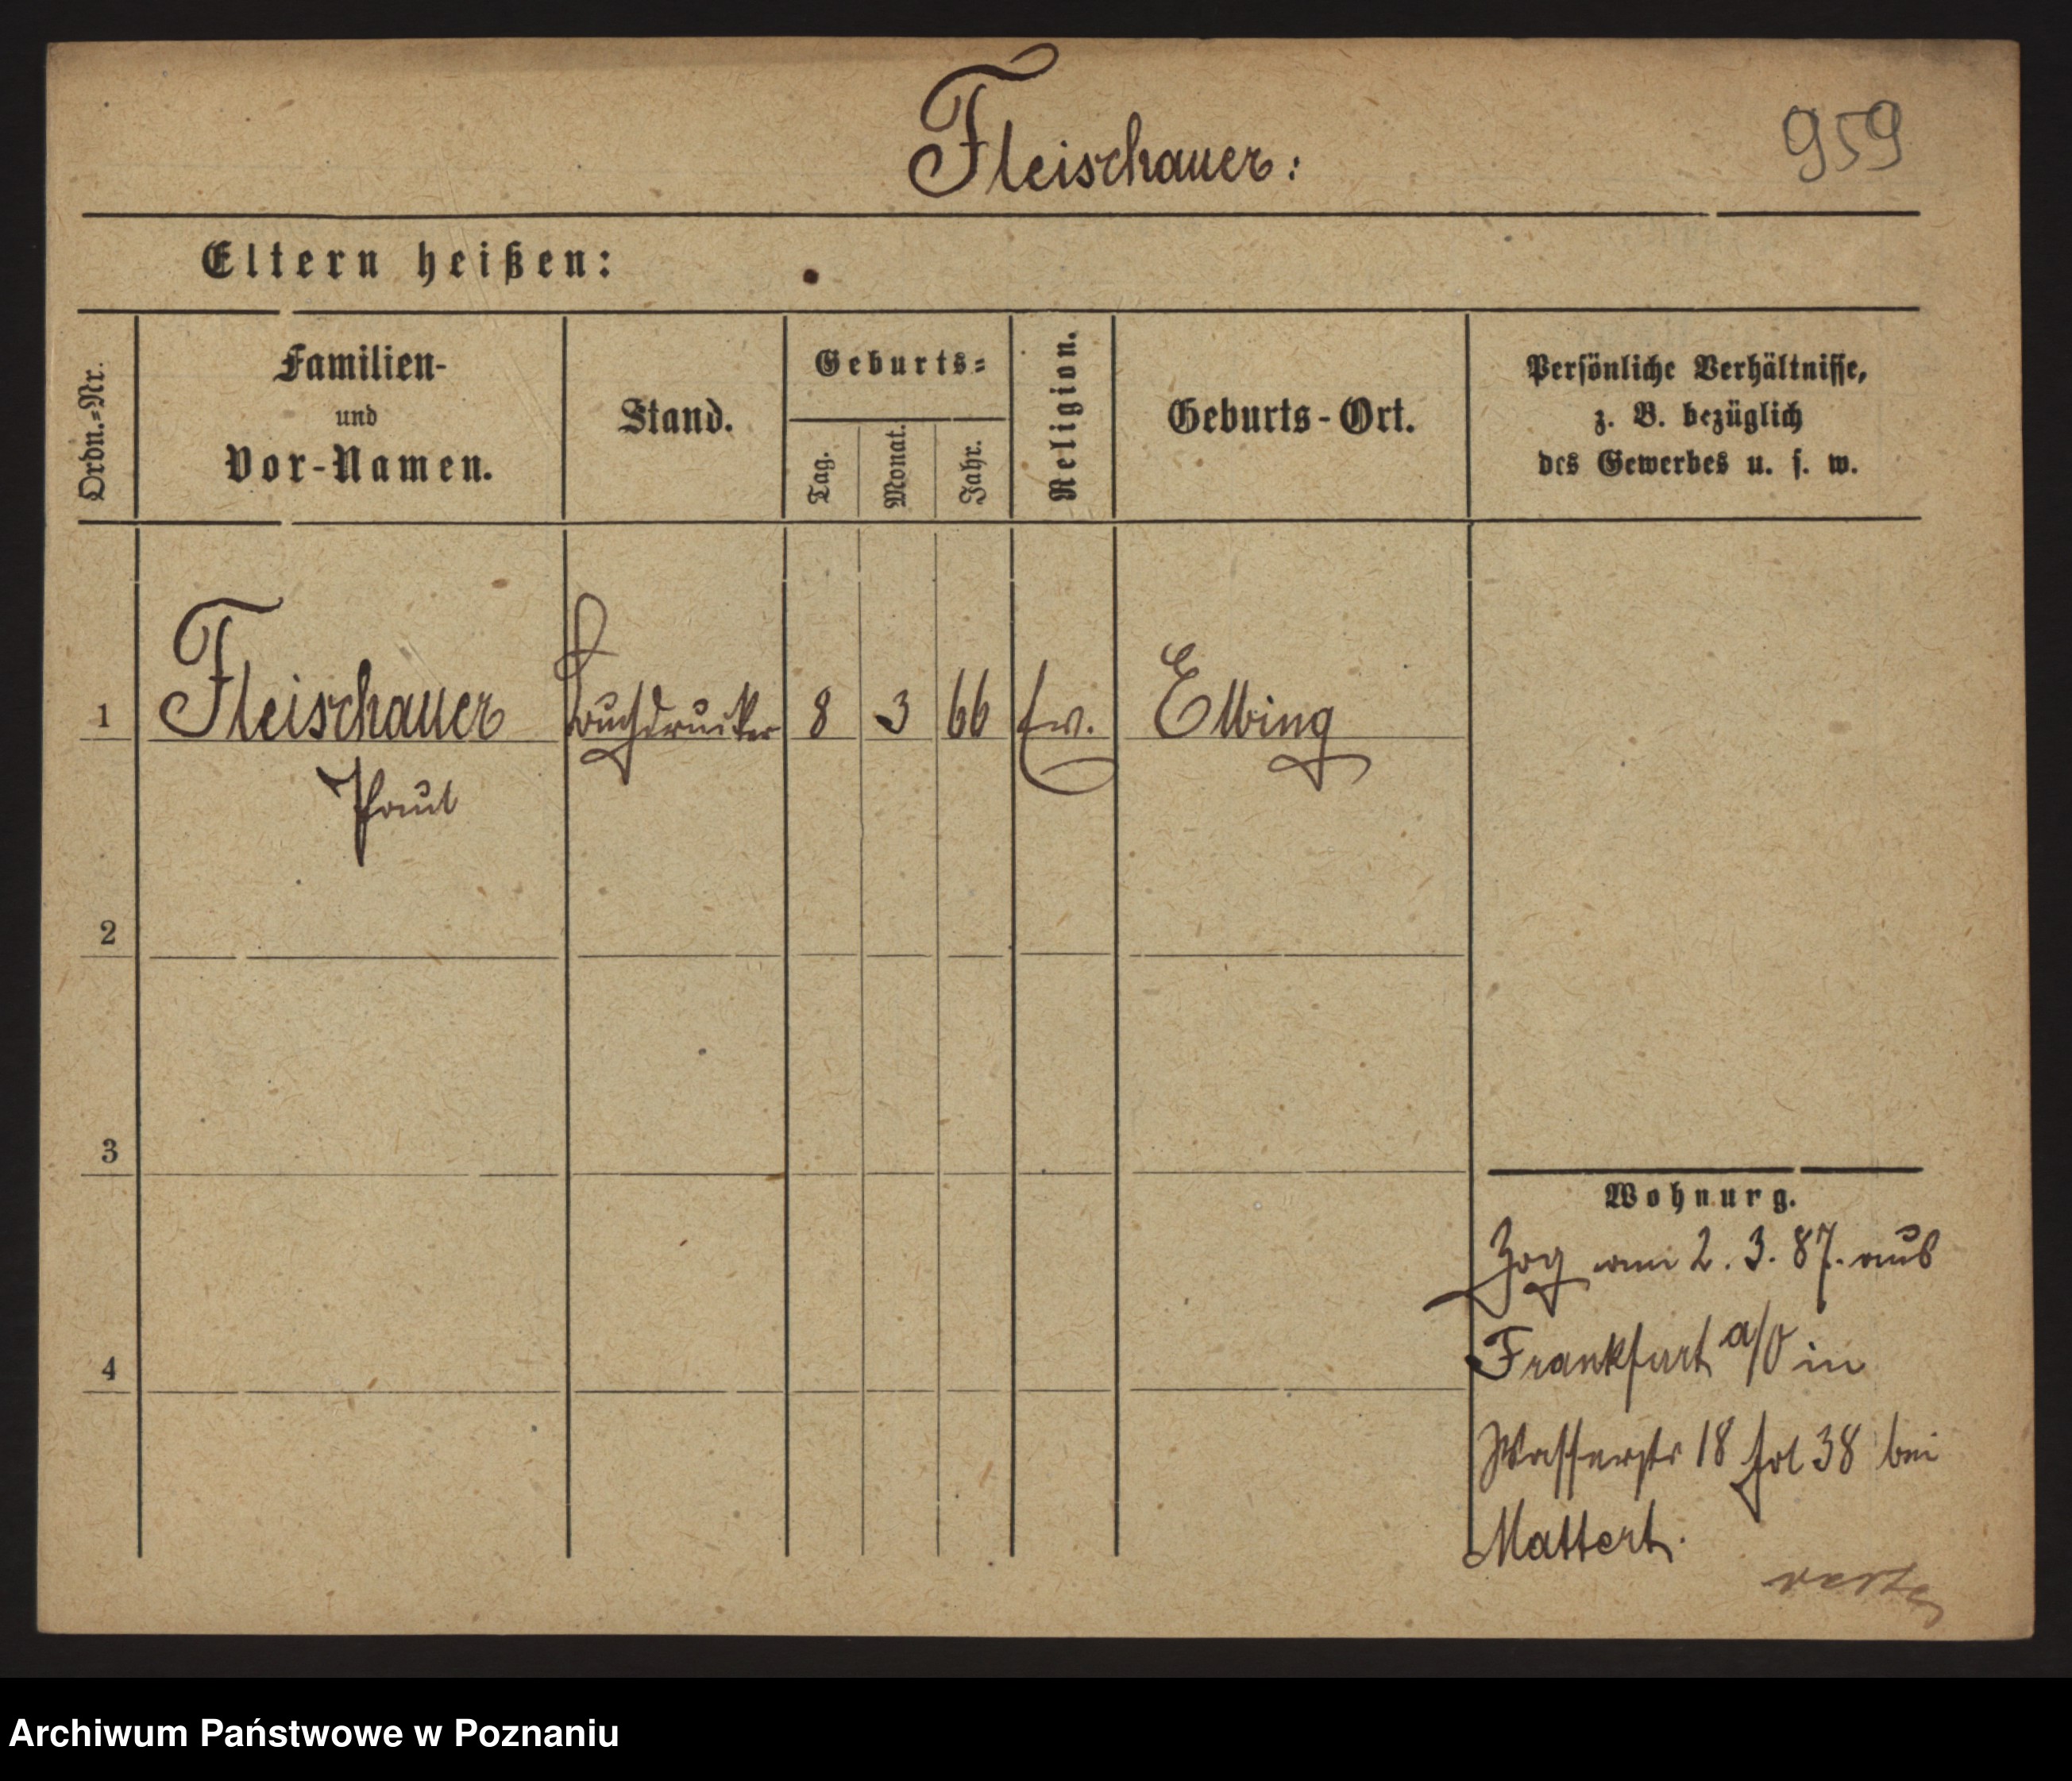 Fleischauer:
959
Eltern heißen:
Ordn.-Nr.
Familien-
und
Vor-Namen.
Stand.
Geburts-
Tag.
Monat.
Jahr.
Religion.
Geburts-Ort.
Persönliche Verhältnisse,
z. B. bezüglich
des Gewerbes u. s. w.
1 Fleischauer Buchdrucker 8 3 66 ev. Elbing
Paul
2
3
4
Wohnurg.
Zog am 2. 3. 87. aus
Frankfurt a/O in
Wasserstr 18 fol 38 bei
Mattert.
verte
Archiwum Państwowe w Poznaniu